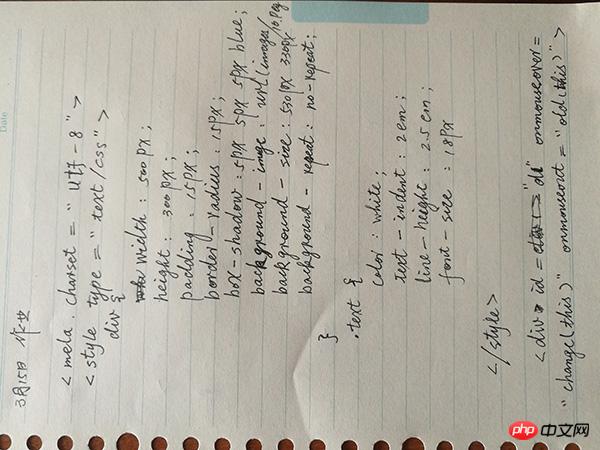 Date
3月15日 作业
<meta. charset = "utf-8">
<style type = "text/css">
div {
width : 500px ;
height : 300px ;
padding : 15px ;
border - radius : 15px ;
box - shadow : 5px 5px 5px blue ;
background - image : url (images/
background - size : 530px 330px ;
background - repeat : no - repeat ;
}
.text {
color : white ;
text - indent : 2em ;
line - height : 2.5em ;
font - size : 18px
</style>
<div id = "di" onmouseover =
"change(this)" onmouseout = "old(this)" >
php 中文网